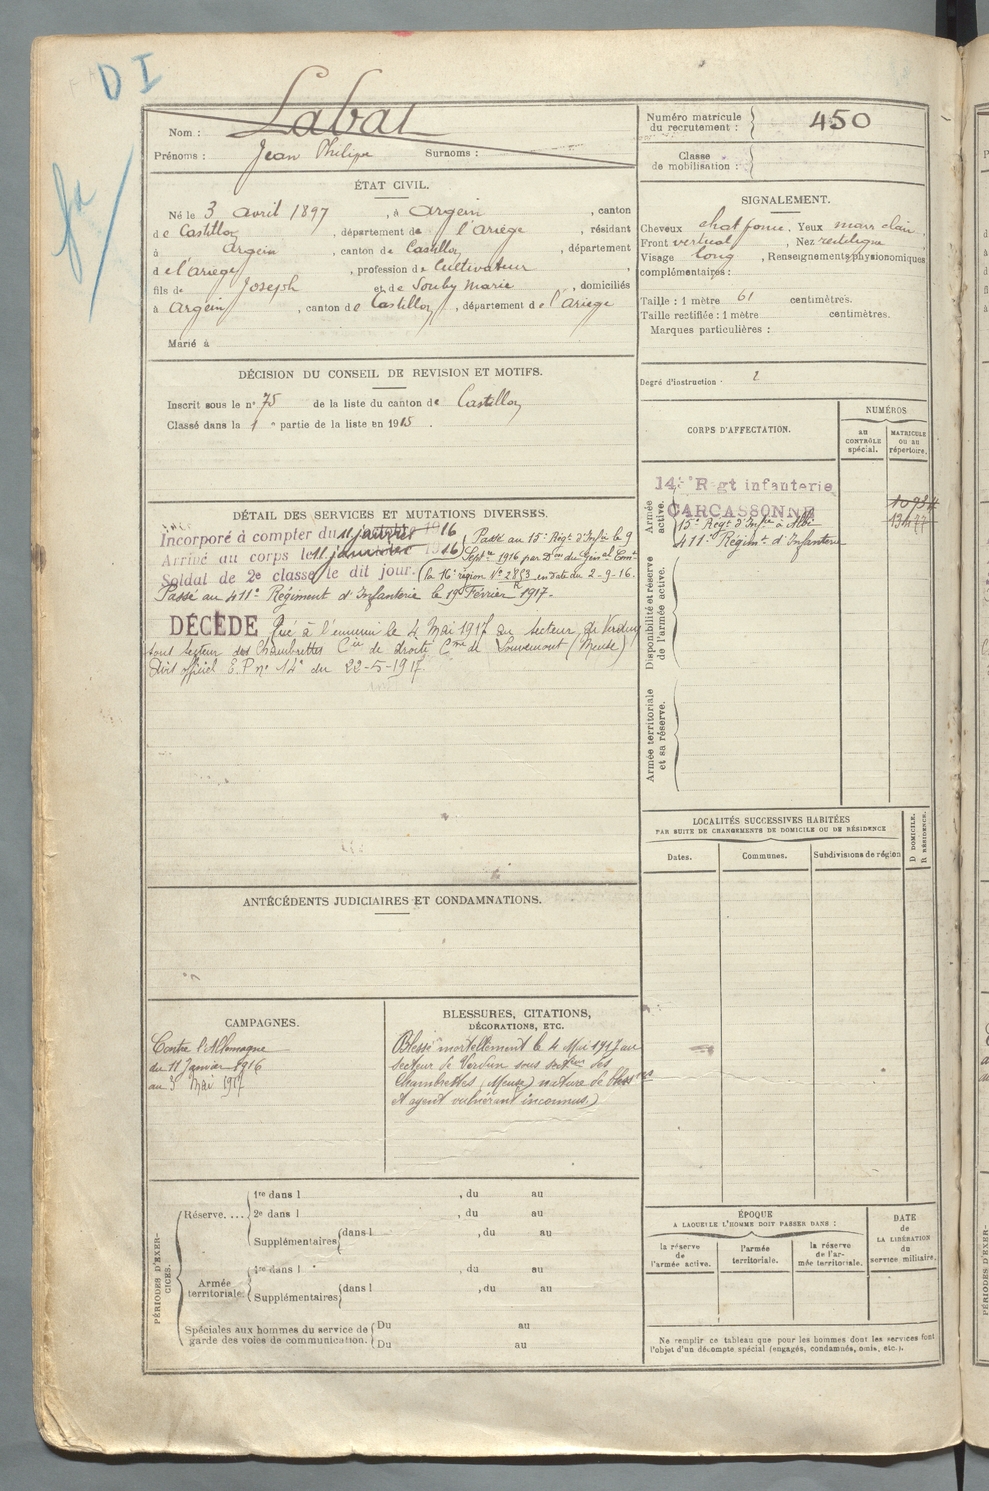 D I
fa
Nom : Labat
Prénoms : Jean Philipe Surnoms :
Numéro matricule du recrutement : 450
Classe de mobilisation :
ÉTAT CIVIL.
Né le 3 avril 1897, à Argein, canton
de Castillon, département de l'Ariège, résidant
à Argein, canton de Castillon, département
de l'ariège, profession de Cultivateur
fils de Joseph et de Souby Marie, domiciliés
à Argein, canton de Castillon, département de l'Ariege
Marié à
SIGNALEMENT.
Cheveux chat fonce. Yeux marr clair,
Front vertical, Nez rectiligne
Visage long, Renseignements physionomiques
complémentaires :
Taille : 1 mètre 61 centimètres.
Taille rectifiée : 1 mètre centimètres.
Marques particulières :
Degré d'instruction. 2
DÉCISION DU CONSEIL DE REVISION ET MOTIFS.
Inscrit sous le n° 75 de la liste du canton de Castillon
Classé dans la 1e partie de la liste en 1915.
CORPS D'AFFECTATION.
NUMÉROS
au CONTRÔLE spécial.
MATRICULE ou au répertoire.
Armée active.
14e Rgt infanterie
CARCASSONNE
15e Regt d'Infie à Albi
411e Régimt d'Infanterie
Disponibilité et réserve de l'armée active.
Armée territoriale et sa réserve.
DÉTAIL DES SERVICES ET MUTATIONS DIVERSES.
Incorporé à compter du 11 janvier 1916
Arrivé au corps le 11 janvier 1916
Soldat de 2e classe le dit jour.
Passé au 15e Régt d'Infie le 9
Septre 1916 par Don du Général Comt
la 16e région No 2853 en date du 2-9-16.
Passé au 411e Régiment d'Infanterie le 19 Février 1917.
DÉCÉDÉ Tué à l'ennemi le 4 Mai 1917 au secteur de Verdun
sous secteur des Chambrettes Cie de droite Cne de Louvemont (Meuse)
Avis officiel E.P n° 14 du 22-5-1917
LOCALITÉS SUCCESSIVES HABITÉES
PAR SUITE DE CHANGEMENTS DE DOMICILE OU DE RÉSIDENCE
Dates.
Communes.
Subdivisions de région
D DOMICILE.
R RÉSIDENCE.
ANTÉCÉDENTS JUDICIAIRES ET CONDAMNATIONS.
CAMPAGNES.
Contre l'Allemagne
du 11 Janvier 1916
au 3 Mai 1917
BLESSURES, CITATIONS,
DÉCORATIONS, ETC.
Blessé mortellement le 4 Mai 1917 au
secteur de Verdun sous sectur des
Chambrettes (Meuse) nature de bless
et agent vulnérant inconnus)
PÉRIODES D'EXERCICES.
Réserve....
1re dans l , du au
2e dans l , du au
Supplémentaires dans l , du au
Armée territoriale
1re dans l , du au
Supplémentaires dans l , du au
Spéciales aux hommes du service de garde des voies de communication.
Du au
Du au
ÉPOQUE
A LAQUELLE L'HOMME DOIT PASSER DANS :
la réserve de l'armée active.
l'armée territoriale.
la réserve de l'armée territoriale.
DATE de LA LIBÉRATION du service militaire.
Ne remplir ce tableau que pour les hommes dont les services font
l'objet d'un décompte spécial (engagés, condamnés, omis, etc.).